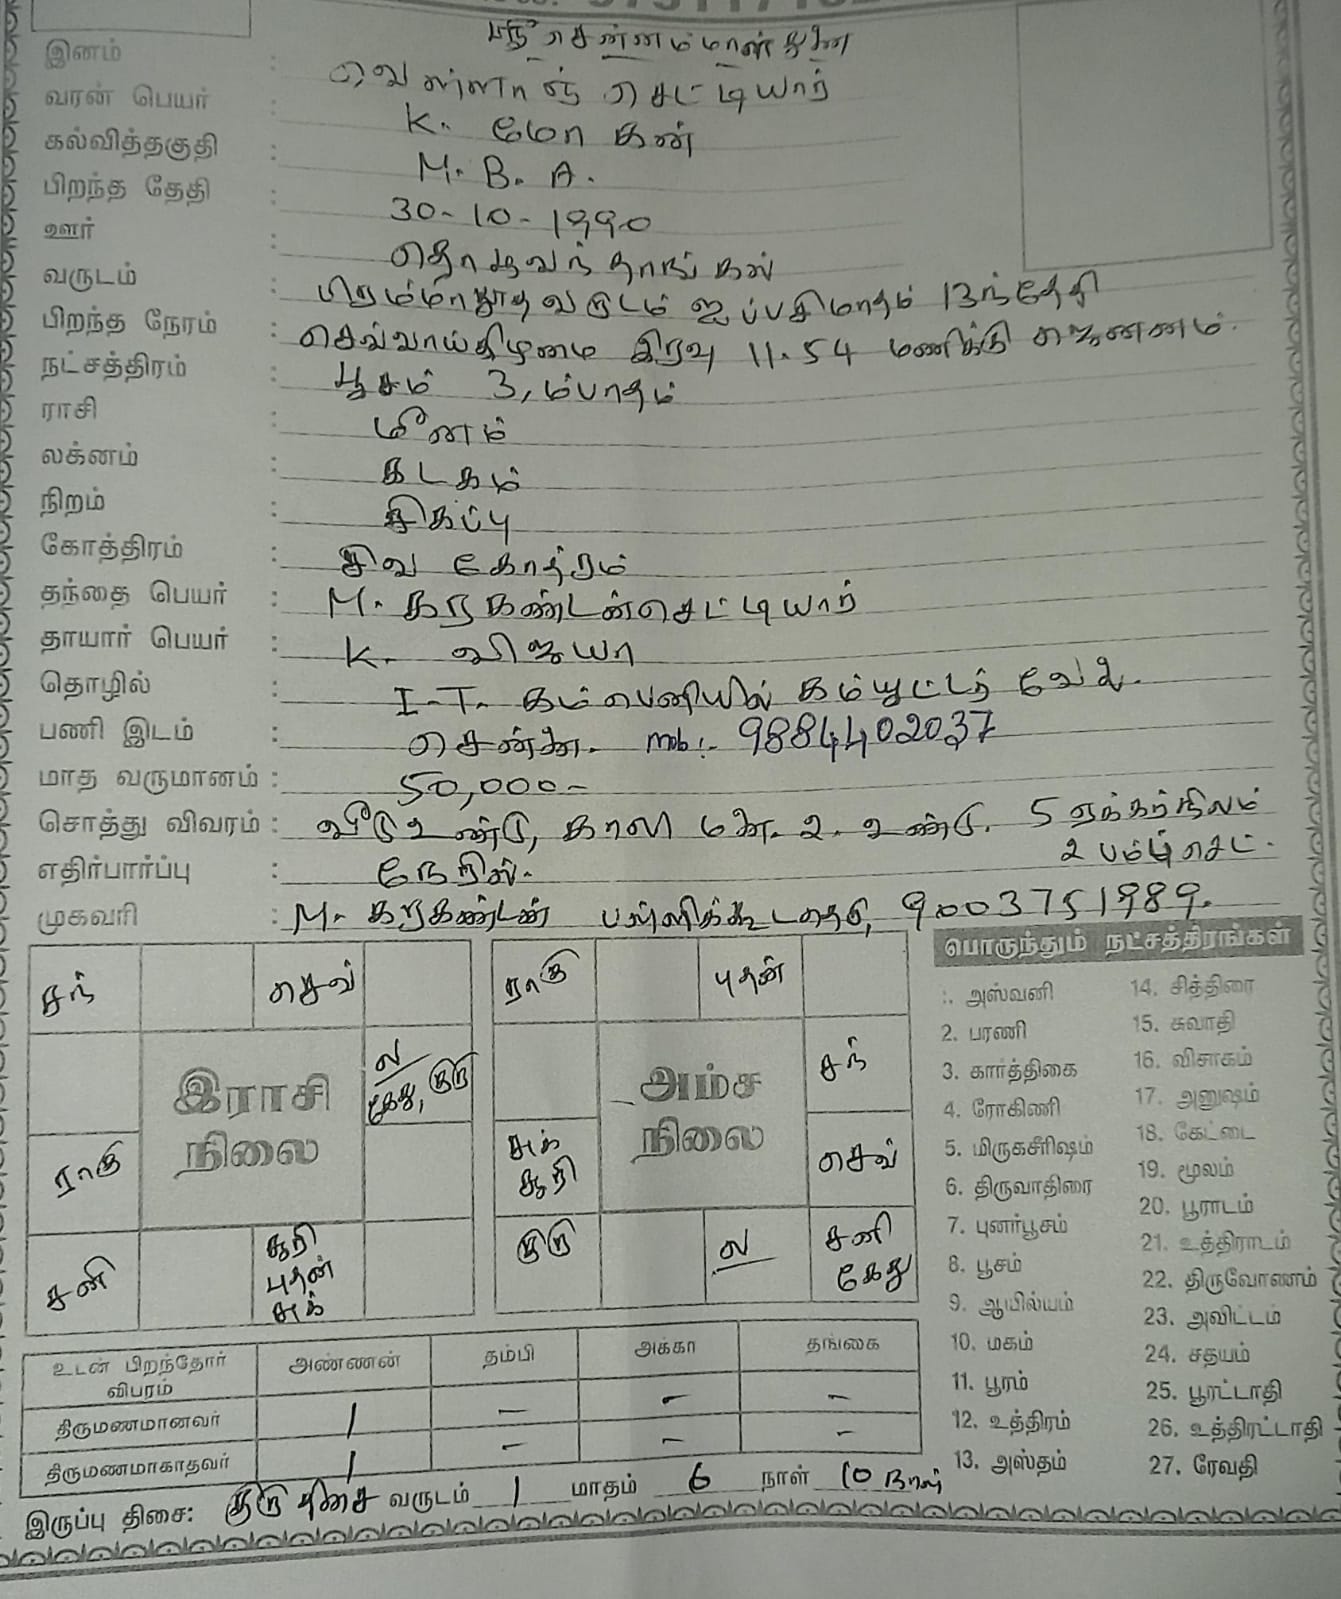 இனம் : வெள்ளாஞ் செட்டியார்
வரன் பெயர் : K. மோகன்
கல்வித்தகுதி : M. B. A.
பிறந்த தேதி : 30-10-1990
ஊர் :
வருடம் : வருடம் ஐப்பசி மாதம் 13ந்தேதி
பிறந்த நேரம் : செவ்வாய்கிழமை இரவு 11.54 மணிக்கு ஜனனம்.
நட்சத்திரம் : பூசம் 3,ம்பாதம்
ராசி : மீனம்
லக்னம் : கடகம்
நிறம் : சிகப்பு
கோத்திரம் : சிவ கோத்ரம்
தந்தை பெயர் : M. கருகண்டன் செட்டியார்
தாயார் பெயர் : K. விஜயா
தொழில் : I-T. கம்பெனியில் கம்யுட்டர் வேலை.
பணி இடம் : சென்னை. mob:- 9884402037
மாத வருமானம் : 50,000-
சொத்து விவரம் : வீடு உண்டு, காலி மனை. 2. உண்டு. 5 ஏக்கர் நிலம்
2 பம்பு செட்.
எதிர்பார்ப்பு : நேரில்.
முகவரி : M. கருகண்டன் 9003751989.
சந் செவ்
ல
கேது, குரு
ராகு
சனி சூரி
புதன்
சுக்
இராசி
நிலை
ராகு புதன்
சந்
சுக்
சூரி செவ்
குரு ல சனி
கேது
அம்ச
நிலை
பொருந்தும் நட்சத்திரங்கள்
1. அஸ்வனி 14. சித்திரை
2. பரணி 15. சுவாதி
3. கார்த்திகை 16. விசாகம்
4. ரோகிணி 17. அனுஷம்
5. மிருகசீரிஷம் 18. கேட்டை
6. திருவாதிரை 19. மூலம்
7. புனர்பூசம் 20. பூராடம்
8. பூசம் 21. உத்திராடம்
9. ஆயில்யம் 22. திருவோணம்
10. மகம் 23. அவிட்டம்
11. பூரம் 24. சதயம்
12. உத்திரம் 25. பூரட்டாதி
13. அஸ்தம் 26. உத்திரட்டாதி
27. ரேவதி
உடன் பிறந்தோர் விபரம் அண்ணன் தம்பி அக்கா தங்கை
திருமணமானவர் 1 - - -
திருமணமாகாதவர் 1 - - -
இருப்பு திசை: குரு திசை வருடம் 1 மாதம் 6 நாள் 10 நாள்